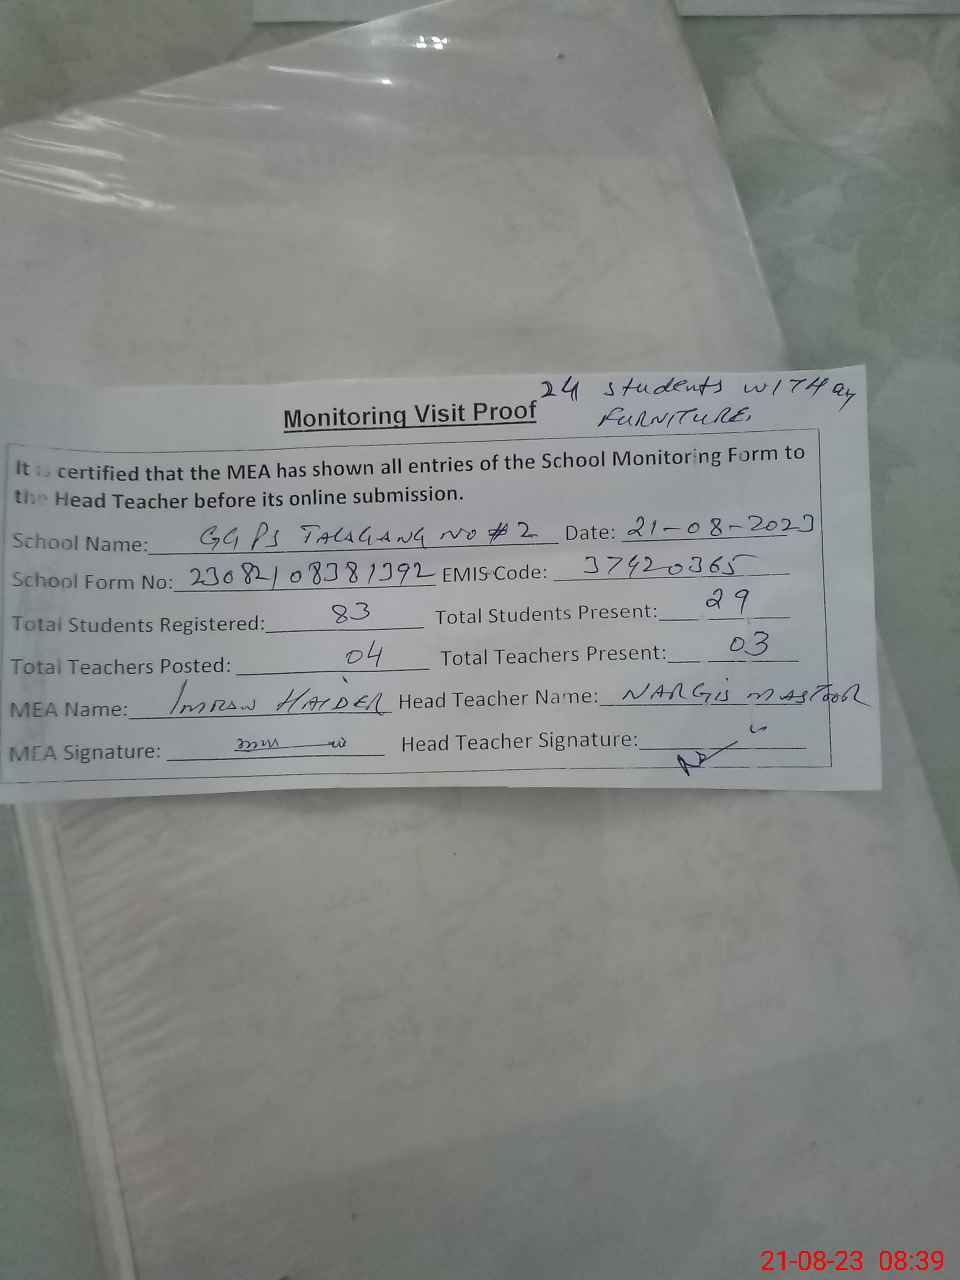 24 students WITH ay
Monitoring Visit Proof
FURNITURE.
It is certified that the MEA has shown all entries of the School Monitoring Form to
the Head Teacher before its online submission.
School Name: GGPS TALAGANG NO # 2 Date: 21-08-2023
School Form No: 2308210838 1392 EMIS Code: 37420365
Total Students Registered: 83 Total Students Present: 29
Total Teachers Posted: 04 Total Teachers Present: 03
MEA Name: IMRAN HAIDER Head Teacher Name: NARGIS MASTOOR
MEA Signature: Head Teacher Signature:
21-08-23 08:39